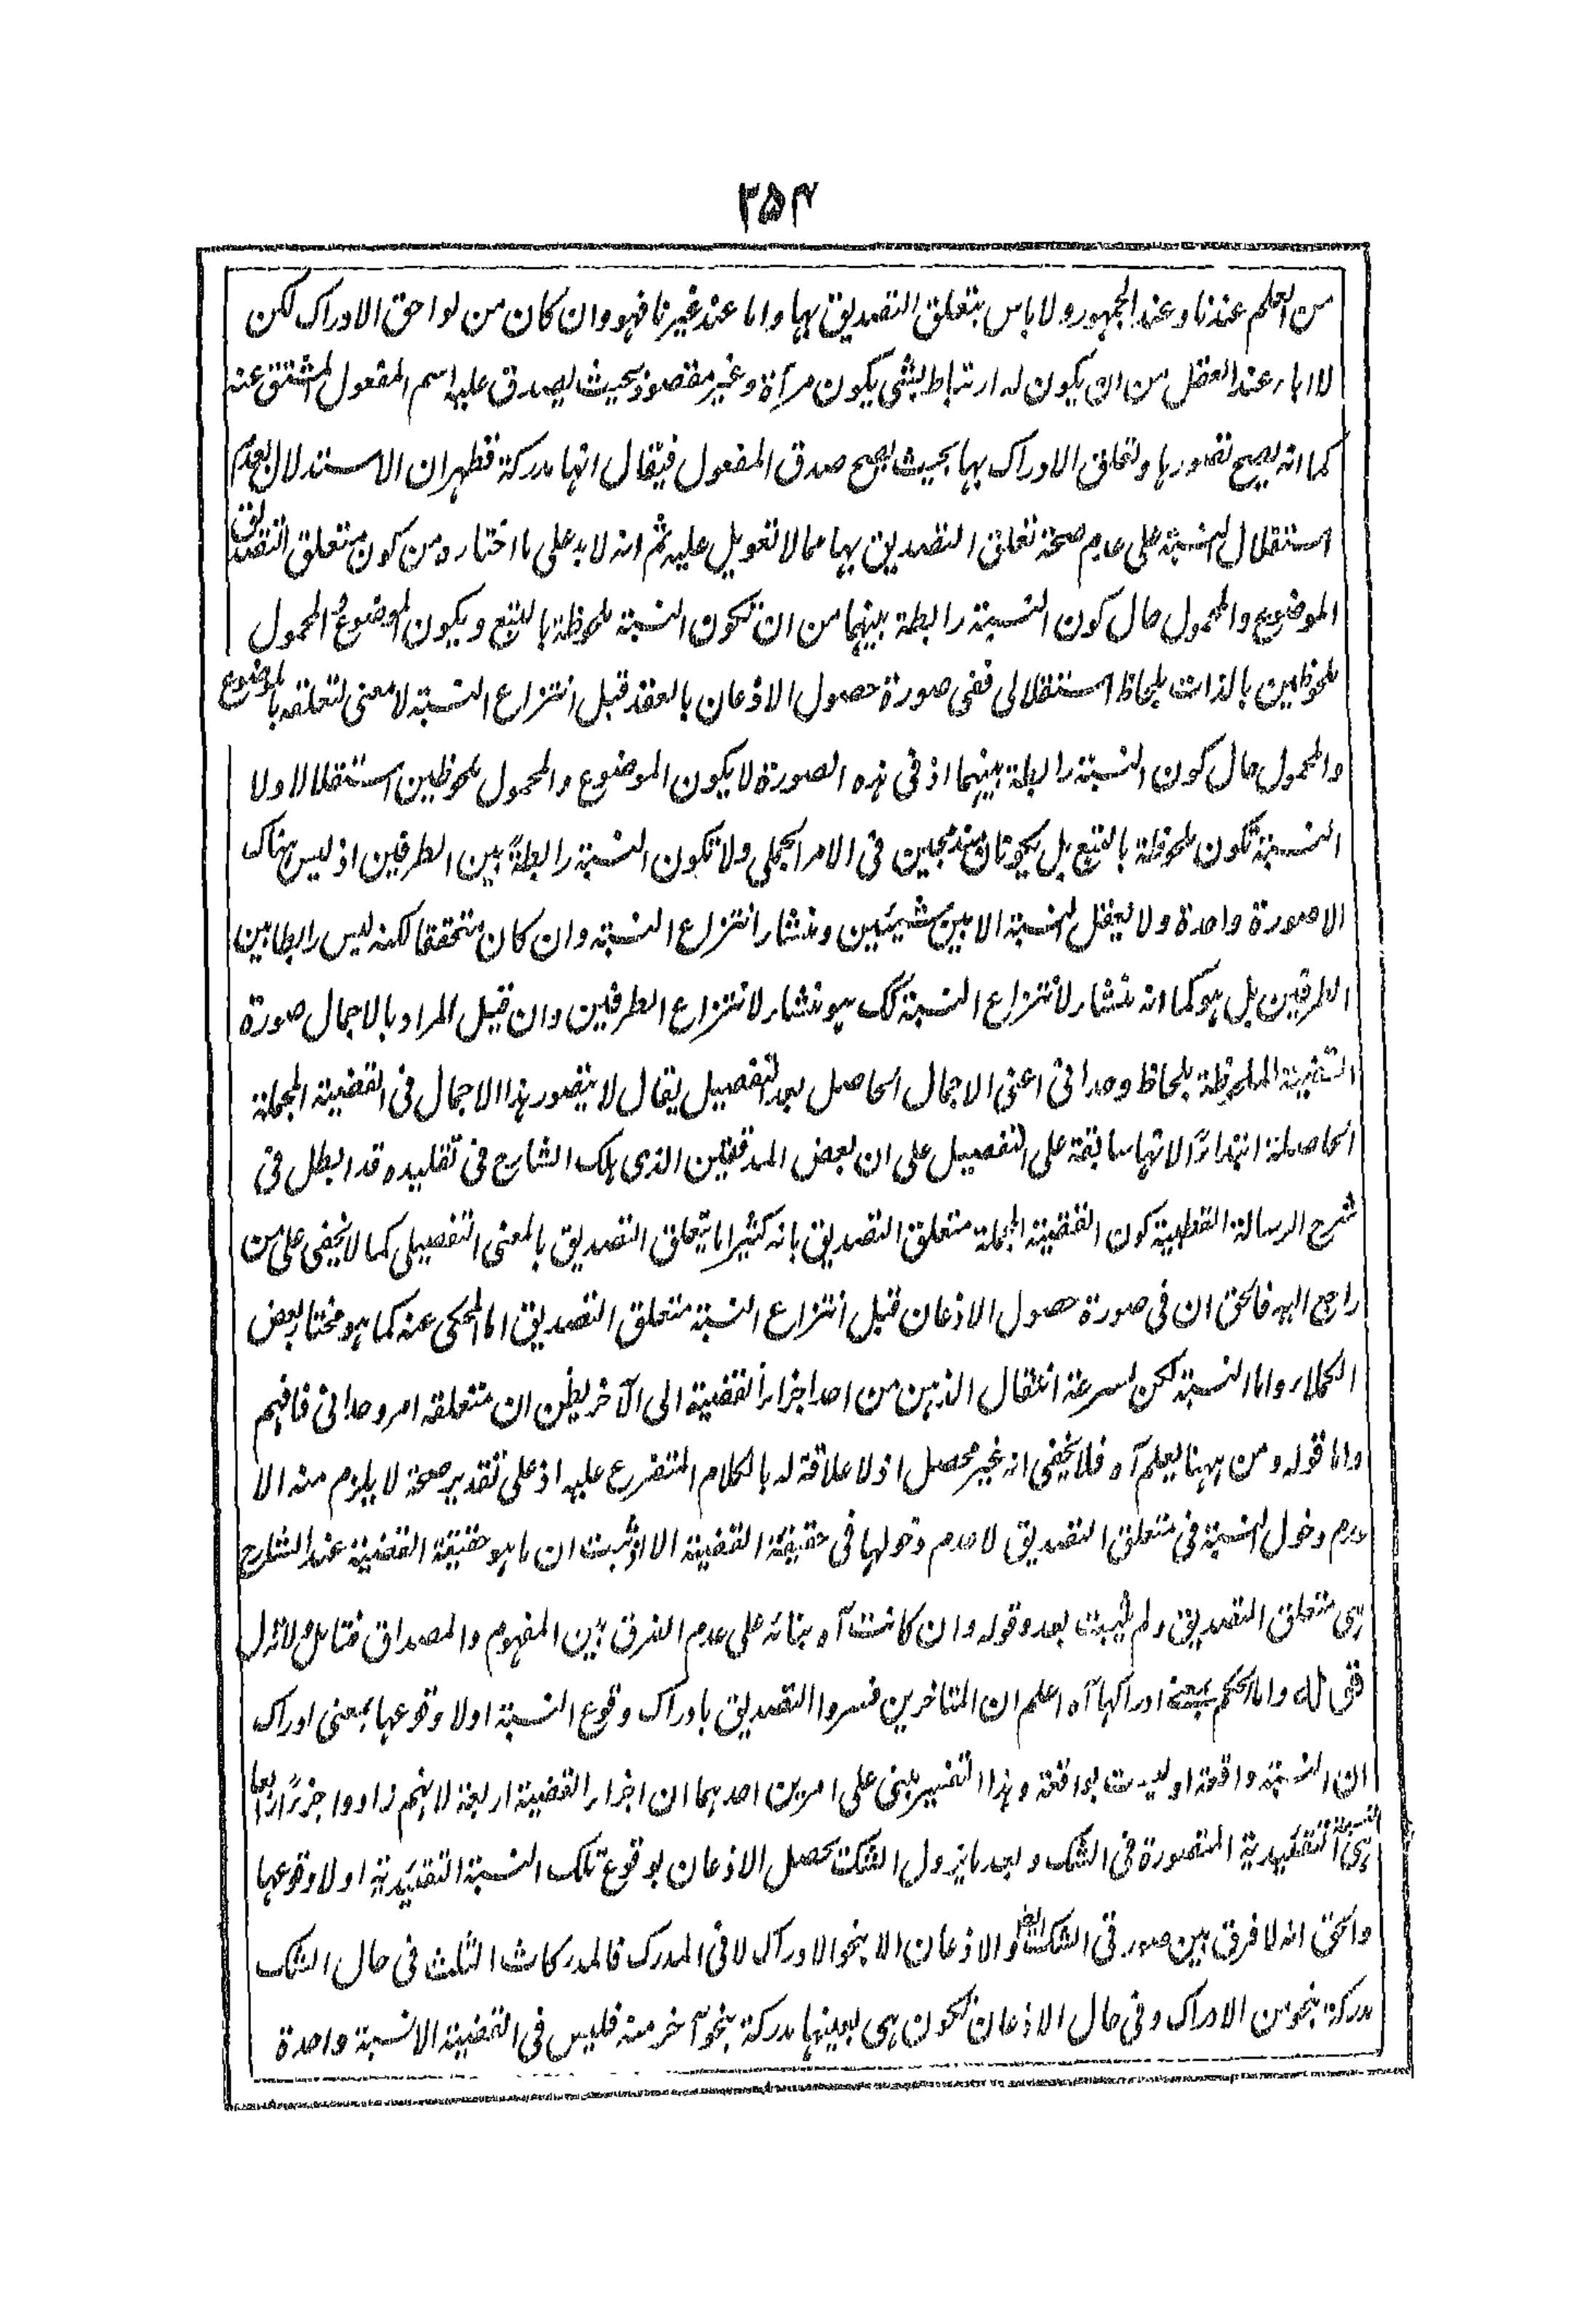 ۳۵۴
من العلم عندنا وعند الجمهور ولا باس بتعلق التصديق بها واما عند غيرنا فهو وان كان من لواحق الادراك لكن
لا اباء عند العقل من ان يكون له ارتباط بشئ يكون مرآة وغير مقصود بحيث يصدق عليه اسم المفعول المشتق عنه
كما انه يصح تصورها وتعلق الادراك بها بحيث يصح صدق المفعول فيقال انها مدركة فظهر ان الاستدلال بعدم
استقلال النسبة على عدم صحة تعلق التصديق بها مما لا تعويل عليه ثم انه لابد على ما اختاره من كون متعلق التصديق
الموضوع والمحمول حال كون النسبة رابطة بينهما من ان تكون النسبة ملحوظة بالتبع ويكون الموضوع والمحمول
ملحوظين بالذات بلحاظ استقلالى ففى صورة حصول الاذعان بالعقد قبل انتزاع النسبة لا معنى لتعلقه بالموضوع
والمحمول حال كون النسبة رابطة بينهما اذ فى هذه الصورة لا يكون الموضوع والمحمول ملحوظين استقلالا ولا
النسبة تكون ملحوظة بالتبع بل يكونان مندمجين فى الامر الجملى ولا تكون النسبة رابطةً بين الطرفين اذ ليس هناك
الا صورة واحدة ولا يعقل النسبة الا بين شيئين ومنشاء انتزاع النسبة وان كان متحققا لكنه ليس رابطا بين
الطرفين بل هو كما انه منشاء لانتزاع النسبة كك هو منشاء لانتزاع الطرفين وان قيل المراد بالاجمال صورة
القضية الملحوظة بلحاظ وحدانى اعنى الاجمال الحاصل بعد التفصيل يقال لا يتصور هذا الاجمال فى القضية المجملة
الحاصلة ابتداءً لانها سابقة على التفصيل على ان بعض المدققين الذى هلك الشارح فى تقليده قد ابطل فى
شرح الرسالة القطبية كون القضية المجملة متعلق التصديق بانه كثيرا ما يتعلق التصديق بالمعنى التفصيلى كما لا يخفى على من
راجع اليه فالحق ان فى صورة حصول الاذعان قبل انتزاع النسبة متعلق التصديق اما المحكى عنه كما هو مختار بعض
الكملاء واما النسبة لكن لسرعة انتقال الذهن من احد اجزاء القضية الى الآخر يظن ان متعلقه امر وحدانى فافهم
واما قوله ومن ههنا يعلم آه فلا يخفى انه غير محصل اذ لا علاقة له بالكلام المتفرع عليه اذ على تقدير صحة لا يلزم منه الا
عدم دخول النسبة فى متعلق التصديق لا عدم دخولها فى حقيقة القضية الا اذ ثبت ان ما هو حقيقة القضية عند الشارح
هى متعلق التصديق ولم يثبت بعد وقوله وان كانت آه بنائه على عدم الفرق بين المفهوم والمصداق فتامل ولا تزل
قوله واما الحكم بمعنى ادراكها آه اعلم ان المتاخرين فسروا التصديق بادراك وقوع النسبة اولا وقوعها بمعنى ادراك
ان النسبة واقعة او ليست بواقعة وهذا التفسير يبنى على امرين احدهما ان اجزاء القضية اربعة لانهم زادوا جزءًا رابعا
هى النسبة التقييدية المتصورة فى الشك وبعد ما يزول الشك يحصل الاذعان بوقوع تلك النسبة التقييدية اولا وقوعها
والحق انه لا فرق بين صورتى الشك والاذعان الا بنحو الادراك لا فى المدرك فالمدركات الثلث فى حال الشك
مدركة بنحو من الادراك وفى حال الاذعان تكون هى بعينها مدركة بنحو آخر منه فليس فى القضية الا نسبة واحدة